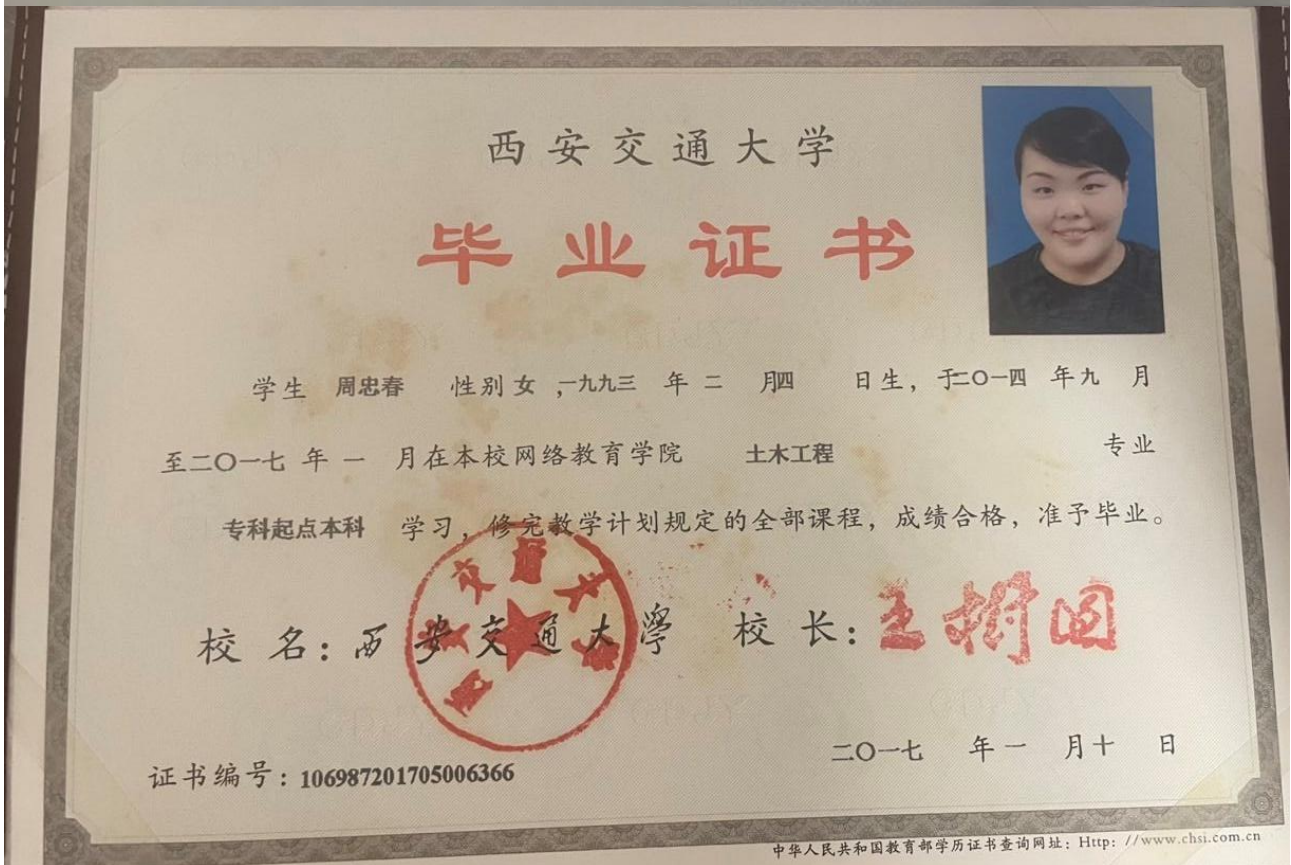 西安交通大学
毕业证书
学生 周忠春 性别 女 ,一九九三 年 二 月四 日生, 于二〇一四 年 九 月
至二〇一七 年 一 月在本校网络教育学院 土木工程 专业
专科起点本科 学习, 修完教学计划规定的全部课程, 成绩合格, 准予毕业。
校 名: 西安交通大學 校 长: 王树国
二〇一七 年 一 月 十 日
证书编号: 106987201705006366
中华人民共和国教育部学历证书查询网址: Http: //www.chsi.com.cn